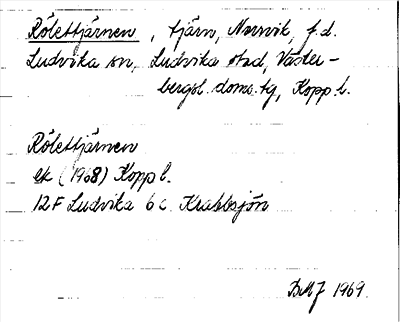 Rölestjärnen, tjärn, Norsvik, f.d.
Ludvika sn, Ludvika stad, Väster-
bergsl. doms.tg, Kopp l.
Rölestjärnen
ek (1968) Kopp l.
12F Ludvika 6 c Krabbsjön
BMJ 1969.